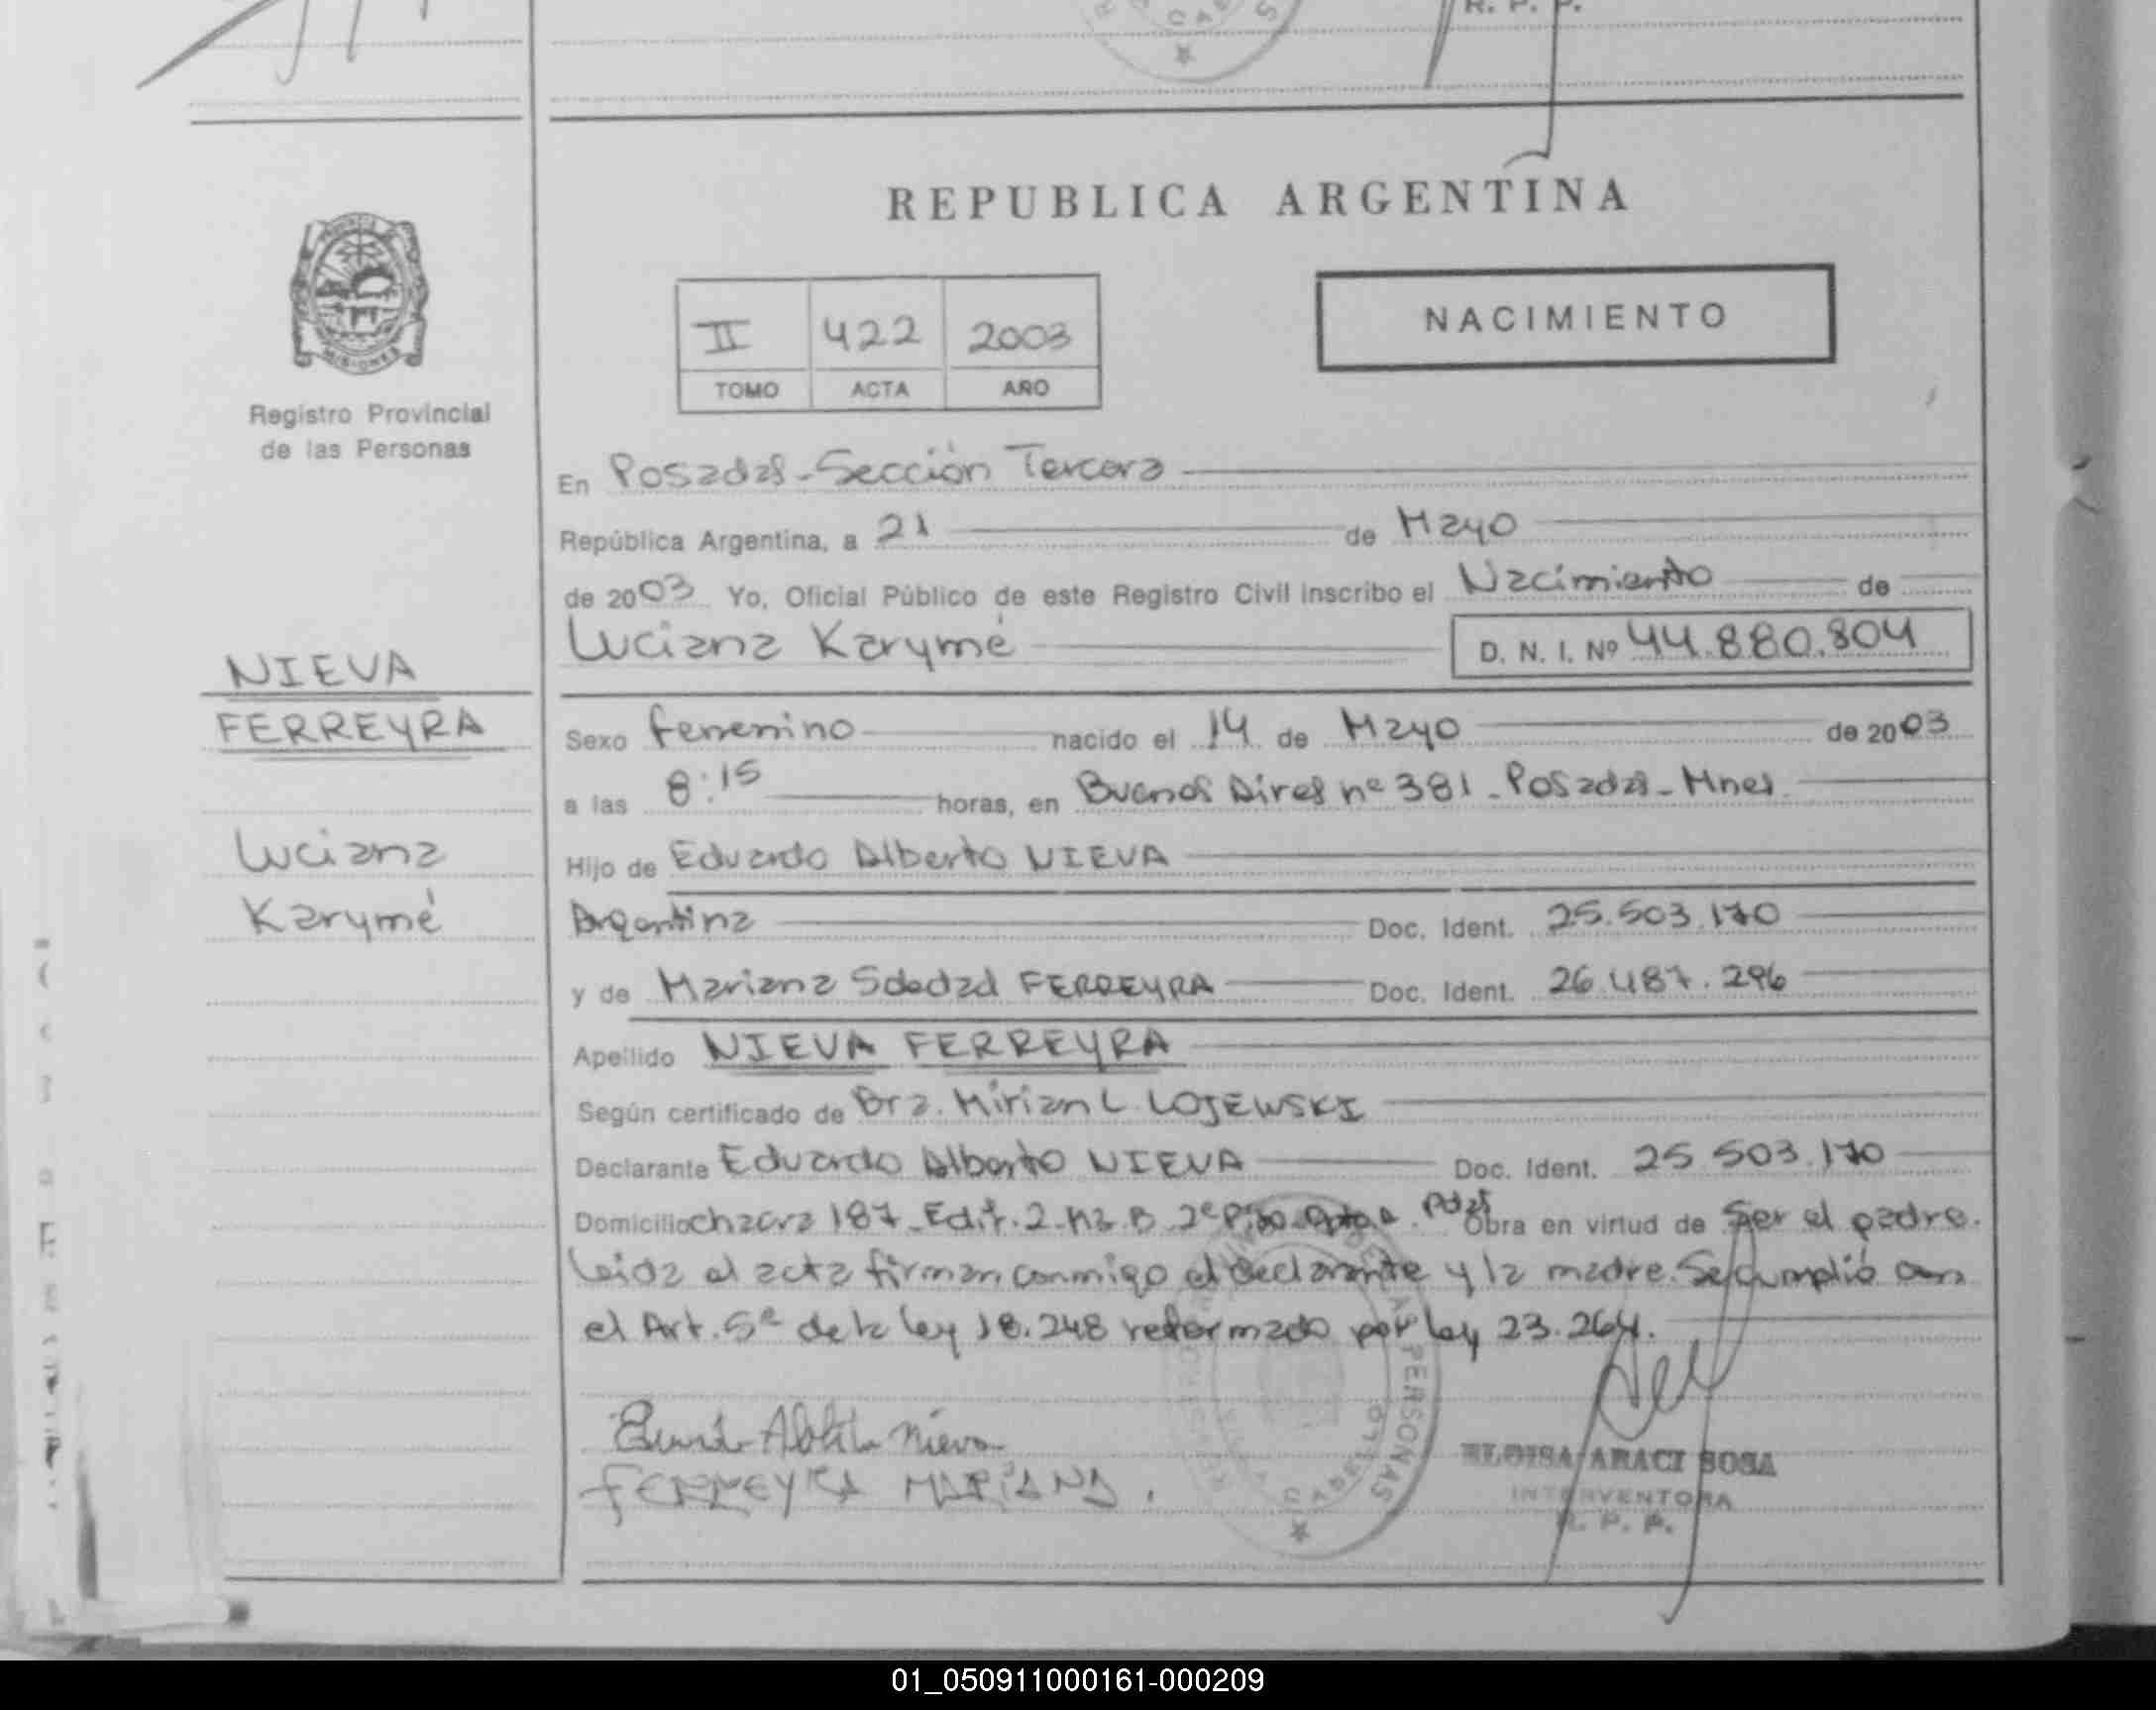 R. P. P.
REPUBLICA ARGENTINA
II 422 2003
TOMO ACTA AÑO
NACIMIENTO
MISIONES
Registro Provincial
de las Personas
En Posadas - Sección Tercera
República Argentina, a 21 de Mayo
de 2003 Yo, Oficial Público de este Registro Civil inscribo el Nacimiento de
Luciana Karymé D. N. I. Nº 44.880.804
NIEVA
FERREYRA
Luciana
Karymé
Sexo femenino nacido el 14 de Mayo de 2003
a las 8:15 horas, en Buenos Aires nº 381 - Posadas - Mnes
Hijo de Eduardo Alberto NIEVA
Argentina Doc. Ident. 25.503.170
y de Mariana Soledad FERREYRA Doc. Ident. 26.487.296
Apellido NIEVA FERREYRA
Según certificado de Dra. Mirian L LOJEWSKI
Declarante Eduardo Alberto NIEVA Doc. Ident. 25.503.170
Domicilio chacra 187 - Edif. 2 - Mz. B 2º Piso Pdas Obra en virtud de Ser el padre.
Leida el acta firman conmigo el declarante y la madre. Se cumplió con
el Art. 5º de la ley 18.248 reformado por ley 23.264.
Nieva
FERREYRA MARIANA.
DE LAS PERSONAS
ELOISA ARACI SOSA
INTERVENTORA
R. P. P.
01_050911000161-000209